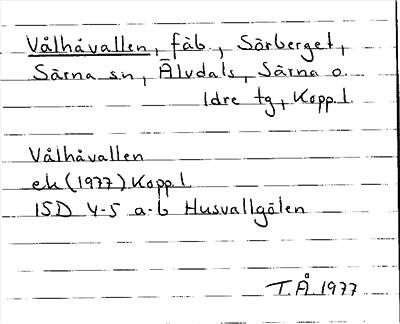 Vålhåvallen, fäb., Sörberget,
Särna sn, Älvdals, Särna o.
Idre tg, Kopp. l.
Vålhåvallen
ek (1977) Kopp. l
15D 4-5 a-b Husvallgölen
T.Å 1977